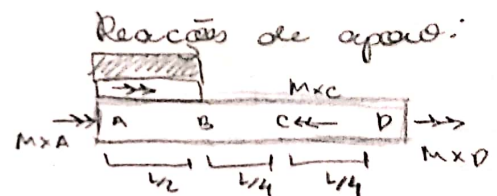 Reações de apoio:
MxC
MxA A B C D MxD
L/2 L/4 L/4